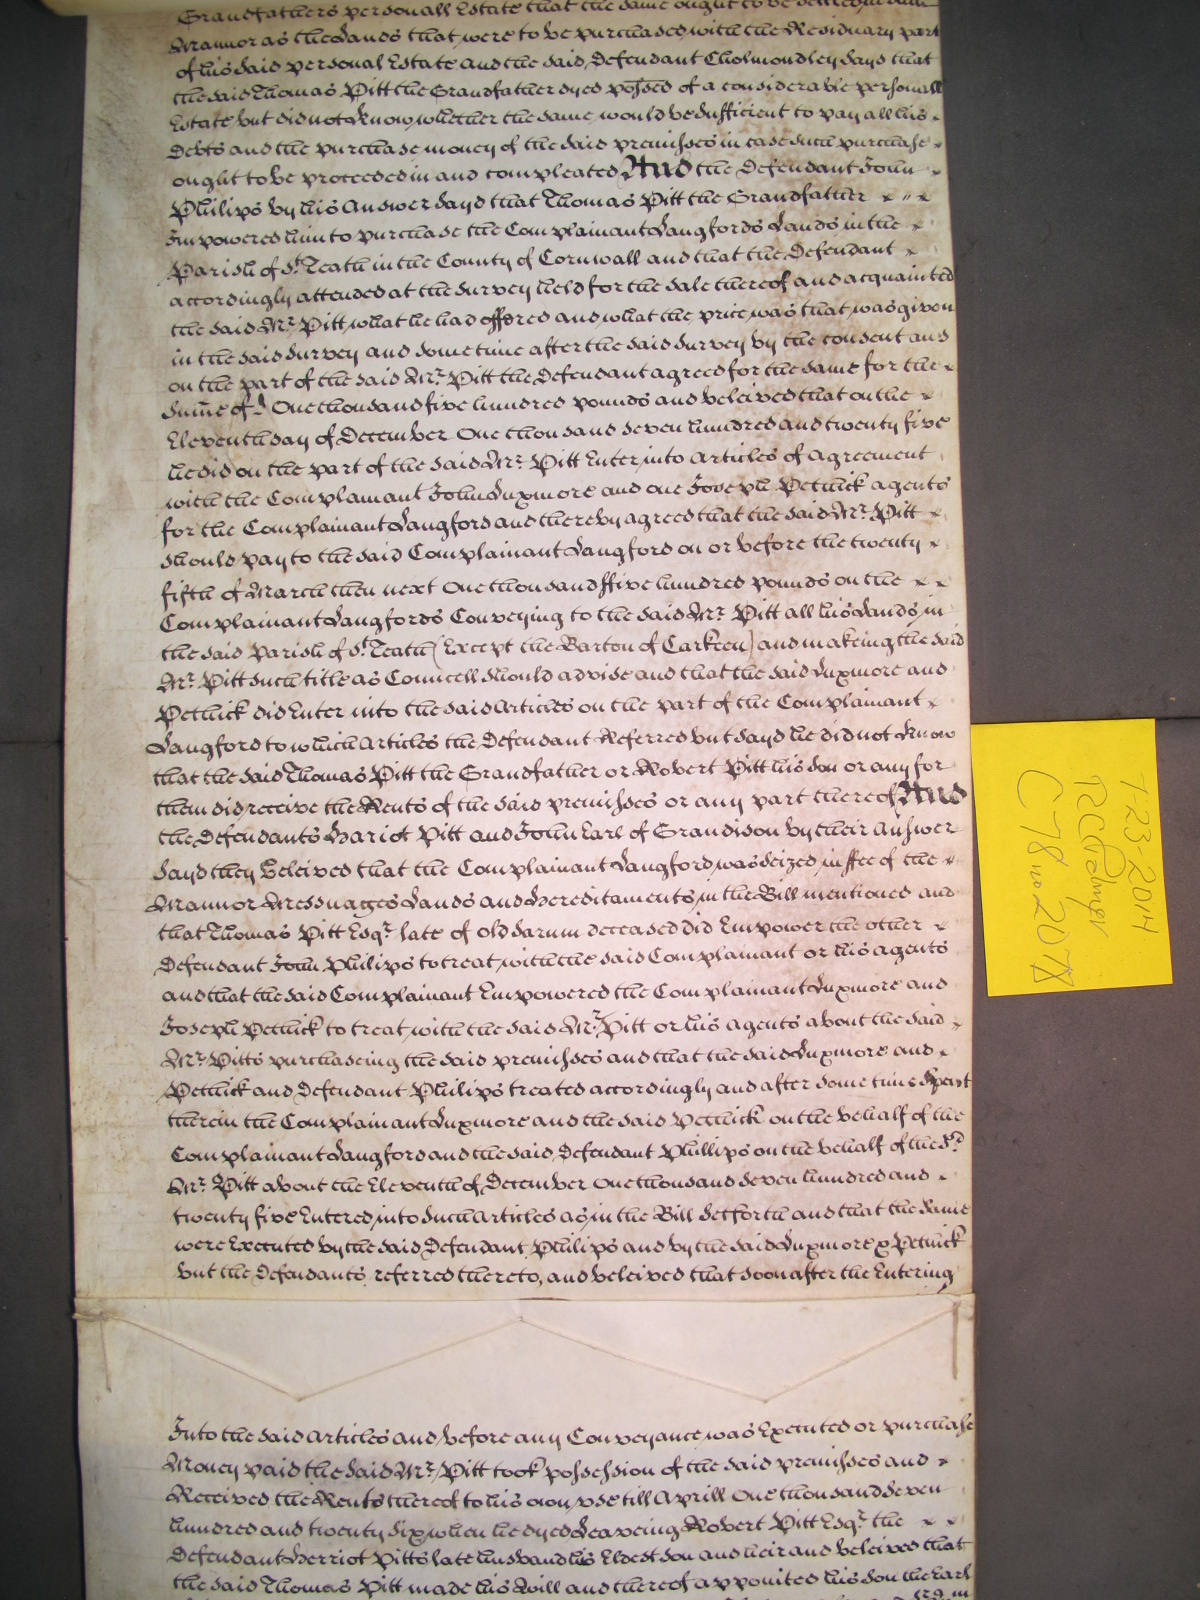 Grandfathers personall Estate that the same ought to be settled in such
Mannor as the Lands that were to be purchased with the Residuary part
of his said personal Estate and the said Defendant Cholmondley sayd that
the said Thomas Pitt the Grandfather dyed possed of a considerable personall
Estate but did not know whether the same would be sufficient to pay all his
Debts and the purchase money of the said premisses in case such purchase
ought to be proceeded in and compleated And the Defendant John
Philips by his Answer sayd that Thomas Pitt the Grandfather
Impowered him to purchase the Complainant Langfords Lands in the
Parish of St. Teath in the County of Cornwall and that the Defendant
accordingly attended at the survey held for the sale thereof and acquainted
the said Mr. Pitt what he had offered and what the price was that was given
in the said survey and some time after the said survey by the consent and
on the part of the said Mr. Pitt the Defendant agreed for the same for the
Sume of One thousand five hundred pounds and beleived that on the
Eleventh day of December One thousand seven hundred and twenty five
he did on the part of the said Mr. Pitt Enter into articles of agreement
with the Complainant John Luxmore and one Joseph Pethick agents
for the Complainant Langford and thereby agreed that the said Mr. Pitt
should pay to the said Complainant Langford on or before the twenty
fifth of March then next One thousand ffive hundred pounds on the
Complainant Langfords Conveying to the said Mr. Pitt all his Lands in
the said parish of St. Teath (Except the Barton of Carkeen) and makeing the said
Mr. Pitt such title as Councell should advise and that the said Luxmore and
Pethick did Enter into the said Articles on the part of the Complainant
Langford to which Articles the Defendant Referred but sayd he did not know
that the said Thomas Pitt the Grandfather or Robert Pitt his son or any for
them did receive the Rents of the said premisses or any part thereof And
the Defendants Hariot Pitt and John Earl of Grandison by their Answer
sayd they beleived that the Complainant Langford was seized in ffee of the
Mannor Messuages Lands and Hereditaments in the Bill mentioned and
that Thomas Pitt Esqr. late of old Sarum deceased did Empower the other
Defendant John Philips to treat with the said Complainant or his agents
and that the said Complainant Empowered the Complainant Luxmore and
Joseph Pethick to treat with the said Mr. Pitt or his agents about the said
Mr. Pitts purchaseing the said premisses and that the said Luxmore and
Pethick and Defendant Philips treated accordingly and after some time spent
therein the Complainant Luxmore and the said Pethick on the behalf of the
Complainant Langford and the said Defendant Phillips on the behalf of the sd.
Mr. Pitt about the Eleventh of December One thousand seven hundred and
twenty five Entered into such articles as in the Bill setforth and that the same
were Executed by the said Defendant Philips and by the said Luxmore & Pethick
but the Defendants referred thereto, and beleived that soon after the Entering
Into the said articles and before any Conveyance was Executed or purchase
Money paid the said Mr. Pitt took possession of the said premisses and
Received the Rents thereof to his own use till Aprill One thousand seven
hundred and twenty six when he dyed Leaveing Robert Pitt Esqr. the
Defendant Herriot Pitts late husband his Eldest son and heir and beleived that
the said Thomas Pitt made his will and thereof appointed his son the Earl
7-23-2014
RC Palmer
C 78 no 2078